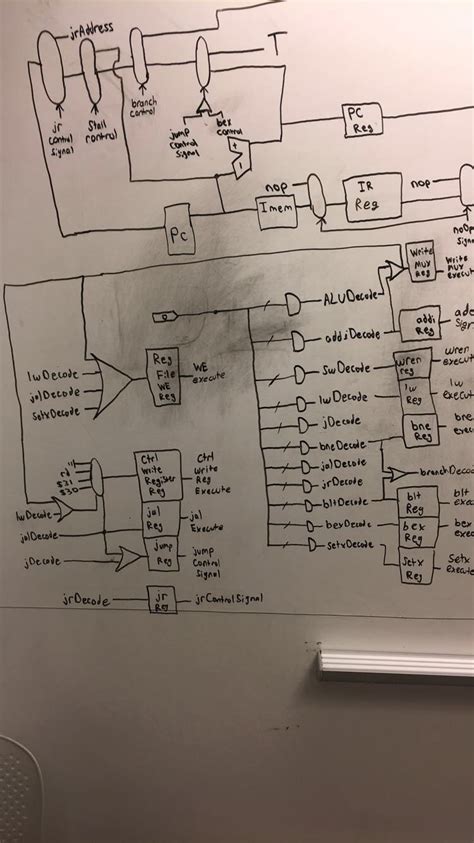 jrAddress
T
jr
control
signal
Stall
control
branch
control
jump
control
signal
bex
control
+
1
PC
Reg
PC
nop
Imem
IR
Reg
nop
noOp
Write
Mux
Reg
Write
Mux
execute
ALUDecode
addiDecode
addi
Reg
swDecode
wren
reg
wren
lwDecode
lw
Reg
lw
jDecode
bneDecode
bne
Reg
bne
jalDecode
jrDecode
bltDecode
blt
Reg
blt
bexDecode
bex
Reg
bex
setxDecode
Setx
Reg
Setx
lwDecode
jalDecode
setxDecode
Reg
File
WE
Reg
WE
execute
rd
$31
$30
Ctrl
Write
Register
Reg
Ctrl
Write
Reg
Execute
lwDecode
jalDecode
jal
Reg
jal
Execute
jDecode
jump
Reg
jump
Control
Signal
jrDecode
jr
Reg
jrControlSignal